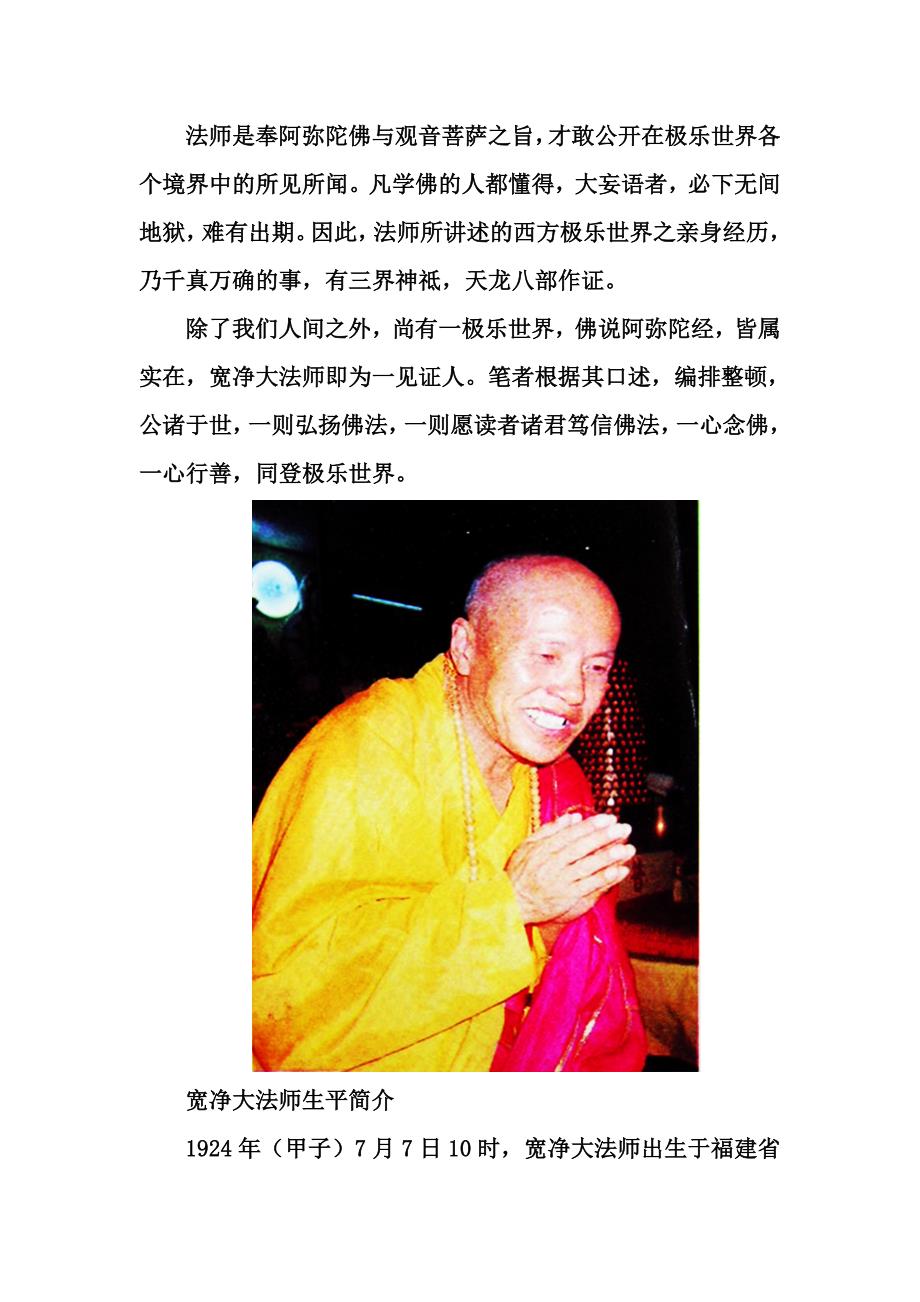 法师是奉阿弥陀佛与观音菩萨之旨，才敢公开在极乐世界各
个境界中的所见所闻。凡学佛的人都懂得，大妄语者，必下无间
地狱，难有出期。因此，法师所讲述的西方极乐世界之亲身经历，
乃千真万确的事，有三界神祇，天龙八部作证。
除了我们人间之外，尚有一极乐世界，佛说阿弥陀经，皆属
实在，宽净大法师即为一见证人。笔者根据其口述，编排整顿，
公诸于世，一则弘扬佛法，一则愿读者诸君笃信佛法，一心念佛，
一心行善，同登极乐世界。
宽净大法师生平简介
1924 年（甲子）7 月 7 日 10 时，宽净大法师出生于福建省